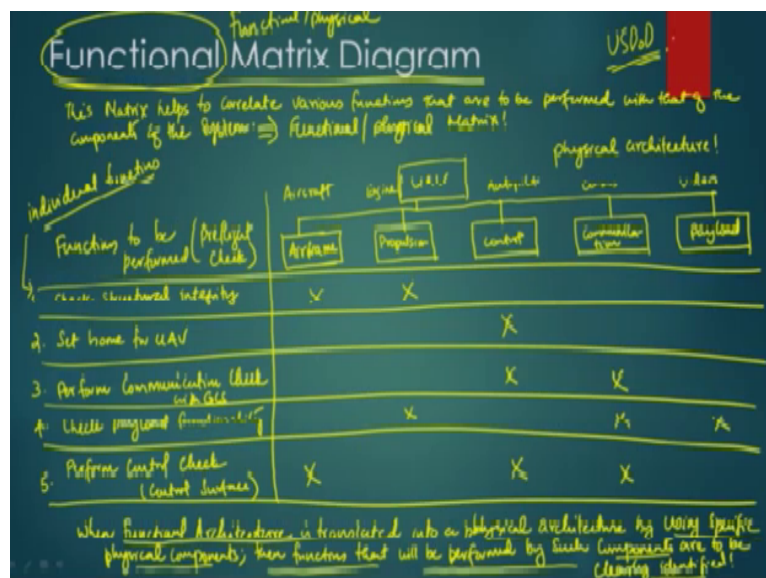 Functional/physical
Functional Matrix Diagram
USDoD
This Matrix helps to correlate various functions that are to be performed with that of the
components of the System: ⇒ Functional/physical Matrix!
physical architecture!
individual functions
Aircraft Engine UAV Autopilot
Functions to be performed (Preflight Check)
Airframe Propulsion Control Communication Payload
1. Check Structural integrity X X
2. Set home for UAV X
3. Perform Communication Check with GCS X X
4. Check payload functionality X X X
5. Perform Control Check (Control Surface) X X X
When Functional Architecture is translated into a physical architecture by Using Specific
physical components, then functions that will be performed by Such Components are to be
clearly identified!